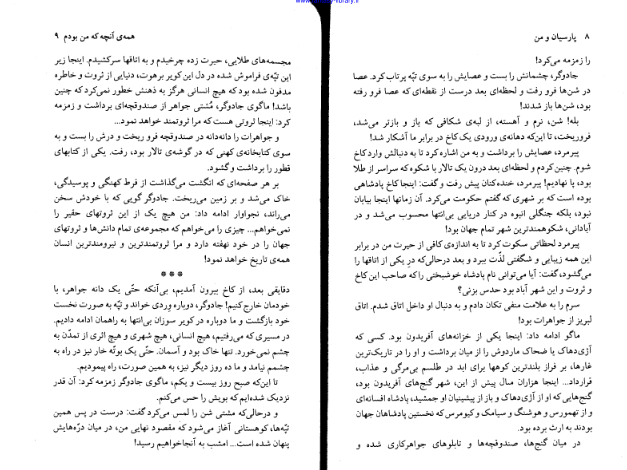 ۸ پارسیان و من
را زمزمه می‌کرد!
جادوگر، چشمانش را بست و عصایش را به سوی تپّه پرتاب کرد. عصا
در شن‌ها فرو رفت و لحظه‌ای بعد درست از نقطه‌ای که عصا فرو رفته
بود، شن‌ها باز شدند!
بله! شن، نرم و آهسته، از لبه‌ی شکافی که باز و بازتر می‌شد،
فروریخت، تا این‌که دهانه‌ی ورودی یک کاخ در برابر ما آشکار شد!
پیرمرد، عصایش را برداشت و به من اشاره کرد تا به دنبالش وارد کاخ
شوم. چنین کردم و لحظه‌ای بعد درون یک تالار با شکوه که سراسر از طلا
بود، پا نهادیم! پیرمرد، خنده‌کنان پیش رفت و گفت: اینجا کاخ پادشاهی
بوده است که بر شهری که گفتم حکومت می‌کرد. آن زمانها اینجا بیابان
نبود، بلکه جنگلی انبوه در کنار دریایی بی‌انتها محسوب می‌شد و در
آبادانی، شکوهمندترین شهر تمام جهان بود!
پیرمرد لحظاتی سکوت کرد تا به اندازه‌ی کافی از حیرت من در برابر
این همه زیبایی و شگفتی لذّت ببرد و بعد درحالی‌که در یکی از اتاقها را
می‌گشود، گفت: آیا می‌توانی نام پادشاه خوشبختی را که صاحب این کاخ
و ثروت و این شهر آباد بود حدس بزنی؟
سرم را به علامت منفی تکان دادم و به دنبال او داخل اتاق شدم. اتاق
لبریز از جواهرات بود!
ماگو ادامه داد: اینجا یکی از خزانه‌های آفریدون بود. کسی که
آژی‌دهاک یا ضحاک ماردوش را از میان برداشت و او را در تاریک‌ترین
غارها، بر فراز بلندترین کوهها برای ابد در طلسم بی‌مرگی و عذاب،
قرارداد... اینجا هزاران سال پیش از این، شهر گنج‌های آفریدون بود،
گنج‌هایی که او از آژی‌دهاک و باز از پیشینیان او جمشید، پادشاه افسانه‌ای
و از تهمورس و هوشنگ و سیامک و کیومرس که نخستین پادشاهان جهان
بودند به ارث برده بود.
در میان گنج‌ها، صندوقچه‌ها و تابلوهای جواهرکاری شده و
همه‌ی آنچه که من بودم ۹
مجسمه‌های طلایی، حیرت زده چرخیدم و به اتاقها سرکشیدم. اینجا زیر
این تپّه‌ی فراموش شده در دل این کویر برهوت، دنیایی از ثروت و خاطره
مدفون شده بود که هیچ انسانی هرگز به ذهنش خطور نمی‌کرد که چنین
باشد! ماگوی جادوگر، مُشتی جواهر از صندوقچه‌ای برداشت و زمزمه
کرد: اینجا ثروتی هست که مرا ثروتمند خواهد نمود...
و جواهرات را دانه‌دانه در صندوقچه فرو ریخت و درش را بست و به
سوی کتابخانه‌ی کهنی که در گوشه‌ی تالار بود، رفت. یکی از کتابهای
قطور را برداشت و گشود.
بر هر صفحه‌ای که انگشت می‌گذاشت از فرط کهنگی و پوسیدگی،
خاک می‌شد و بر زمین می‌ریخت. جادوگر گویی که با خودش سخن
می‌راند، نجواوار ادامه داد: من هیچ یک از این ثروتهای حقیر را
نمی‌خواهم... چیزی را می‌خواهم که مجموعه‌ی تمام دانش‌ها و ثروتهای
جهان را در خود نهفته دارد و مرا ثروتمندترین و نیرومندترین انسان
همه‌ی تاریخ خواهد نمود!
***
دقایقی بعد، از کاخ بیرون آمدیم، بی‌آنکه حتّی یک دانه جواهر، با
خودمان خارج کنیم! جادوگر، دوباره وردی خواند و تپّه به صورت نخست
خود بازگشت و ما دوباره در کویر سوزان بی‌انتها به راهمان ادامه دادیم.
در مسیری که می‌رفتیم، هیچ انسانی، هیچ شهری و هیچ اثری از تمدّن به
چشم نمی‌خورد. تنها خاک بود و آسمان. حتّی یک بوتّه خار نیز در راه به
چشمم نیامد و ما ده روز دیگر نیز، به همین صورت، راه پیمودیم.
تا این‌که صبح روز بیست و یکم، ماگوی جادوگر زمزمه کرد: آن قدر
نزدیک شده‌ایم که بویش را حس می‌کنم.
و درحالی‌که مشتی شن را لمس می‌کرد گفت: درست در پس همین
تپّه‌ها، کوهستانی آغاز می‌شود که مقصود نهایی من، در میان درّه‌هایش
پنهان شده است... امشب به آنجا خواهیم رسید!